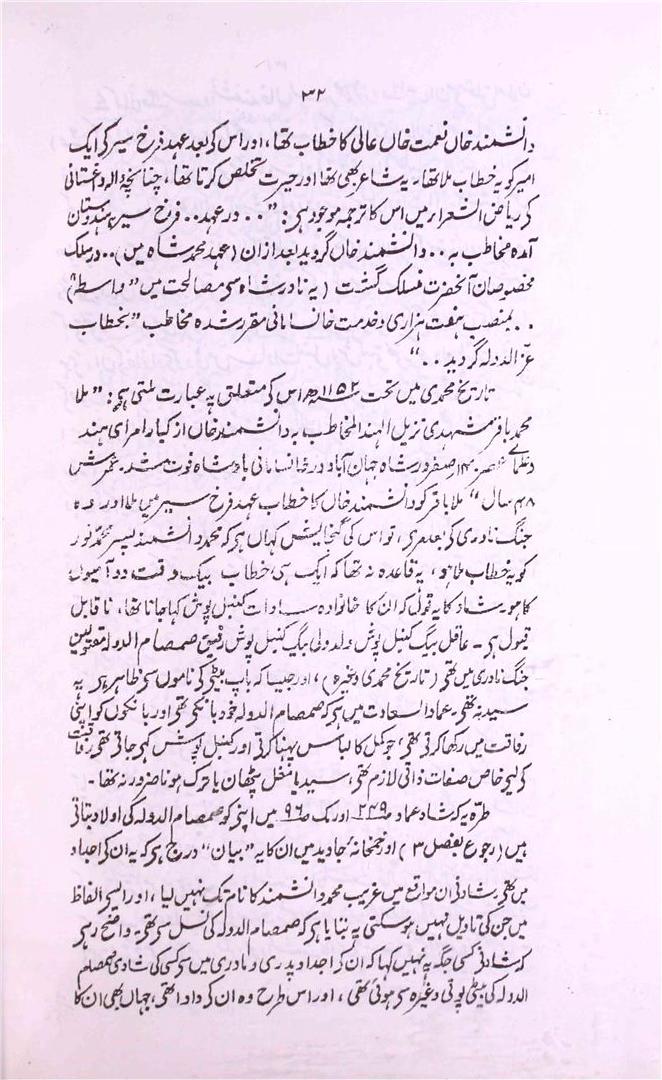 ۳۲
دانشمند خاں نعمت خاں عالی کا خطاب تھا، اور اس کی بعد عہد فرخ سیر کی ایک
امیر کو یہ خطاب ملا تھا۔ یہ شاعر بھی تھا اور حیرت تخلص کرتا تھا، چنانچہ والہ داغستانی
کی ریاض الشعرا میں اس کا ترجمہ موجود ہی: ”۰۰ در عہد ۰۰ فرخ سیر بہندوستان
آمدہ مخاطب بہ ۰۰ دانشمند خاں گردید بعد ازان (عہد محمد شاہ میں) ۰۰ در سلک
مخصوصان آنحضرت منسلک گشت (یہ نادر شاہ سی مصالحت میں ”واسطہ“ تھا)
۰۰ بمنصب ہفت ہزاری و خدمت خانسامانی مقرر شدہ مخاطب ”بخطاب
عزّ الدولہ گردید ۰۰“
تاریخ محمدی میں تحت ۱۱۵۲ھ اس کی متعلق یہ عبارت ملتی ہی: ”ملا
محمد باقر مشہدی نزیل الہند المخاطب بہ دانشمند خاں از کبار امرای ہند
و علمای عصر ۱۴ صفر در شاہ جہان آباد در خانسامانی بادشاہ فوت شد۔ عمرش
۴۸ سال“ ملا باقر کو دانشمند خاں کا خطاب عہد فرخ سیر میں ملا اور وہ
جنگ نادری کی بعد مری، تو اس کی گنجایش کہاں ہی کہ محمد دانشمند پسر محمد نور
کو یہ خطاب ملا ہو، یہ قاعدہ نہ تھا کہ ایک ہی خطاب بیک وقت دو آدمیوں
کا ہو۔ شاد کا یہ قول کہ ان کا خانوادہ سادات کنبل پوش کہا جاتا تھا، نا قابل
قبول ہی۔ عاقل بیگ کنبل پوش ولد ولی بیگ کنبل پوش رفیق صمصام الدولہ مقتولین
جنگ نادری میں تھی (تاریخ محمدی وغیرہ)، اور جیسا کہ باپ بیٹی کی ناموں سی ظاہر ہی یہ
سید نہ تھی۔ عماد السعادت میں ہی کہ صمصام الدولہ خود بانکی تھی اور بانکوں کو اپنی
رفاقت میں رکھا کرتی تھی، جو کمل کا لباس پہنا کرتی اور کنبل پوش کہی جاتی تھی رفاقت
کی لیی خاص صفات ذاتی لازم تھی، سید یا مغل پٹھان یا ترک ہونا ضرور نہ تھا۔
طرّہ یہ کہ شاد عماد ص ۲۴۹ اور مک ص ۹۶ میں اپنی کو صمصام الدولہ کی اولاد بتاتی
ہیں (رجوع بفصل ۳) اور خمخانۂ جاوید میں ان کا یہ ”بیان“ درج ہی کہ یہ ان کی اجداد
میں تھی۔ شاد نی ان مواقع میں غریب محمد دانشمند کا نام تک نہیں لیا، اور ایسی الفاظ
میں جن کی تاویل نہیں ہو سکتی یہ بتایا ہی کہ صمصام الدولہ کی نسل سی تھی۔ یہ واضح رہی
کہ شاد نی کسی جگہ یہ نہیں کہا کہ ان کی اجداد پدری و مادری میں سی کسی کی شادی صمصام
الدولہ کی بیٹی پوتی وغیرہ سی ہوئی تھی، اور اس طرح وہ ان کی دادا تھی، جہاں بھی ان کا